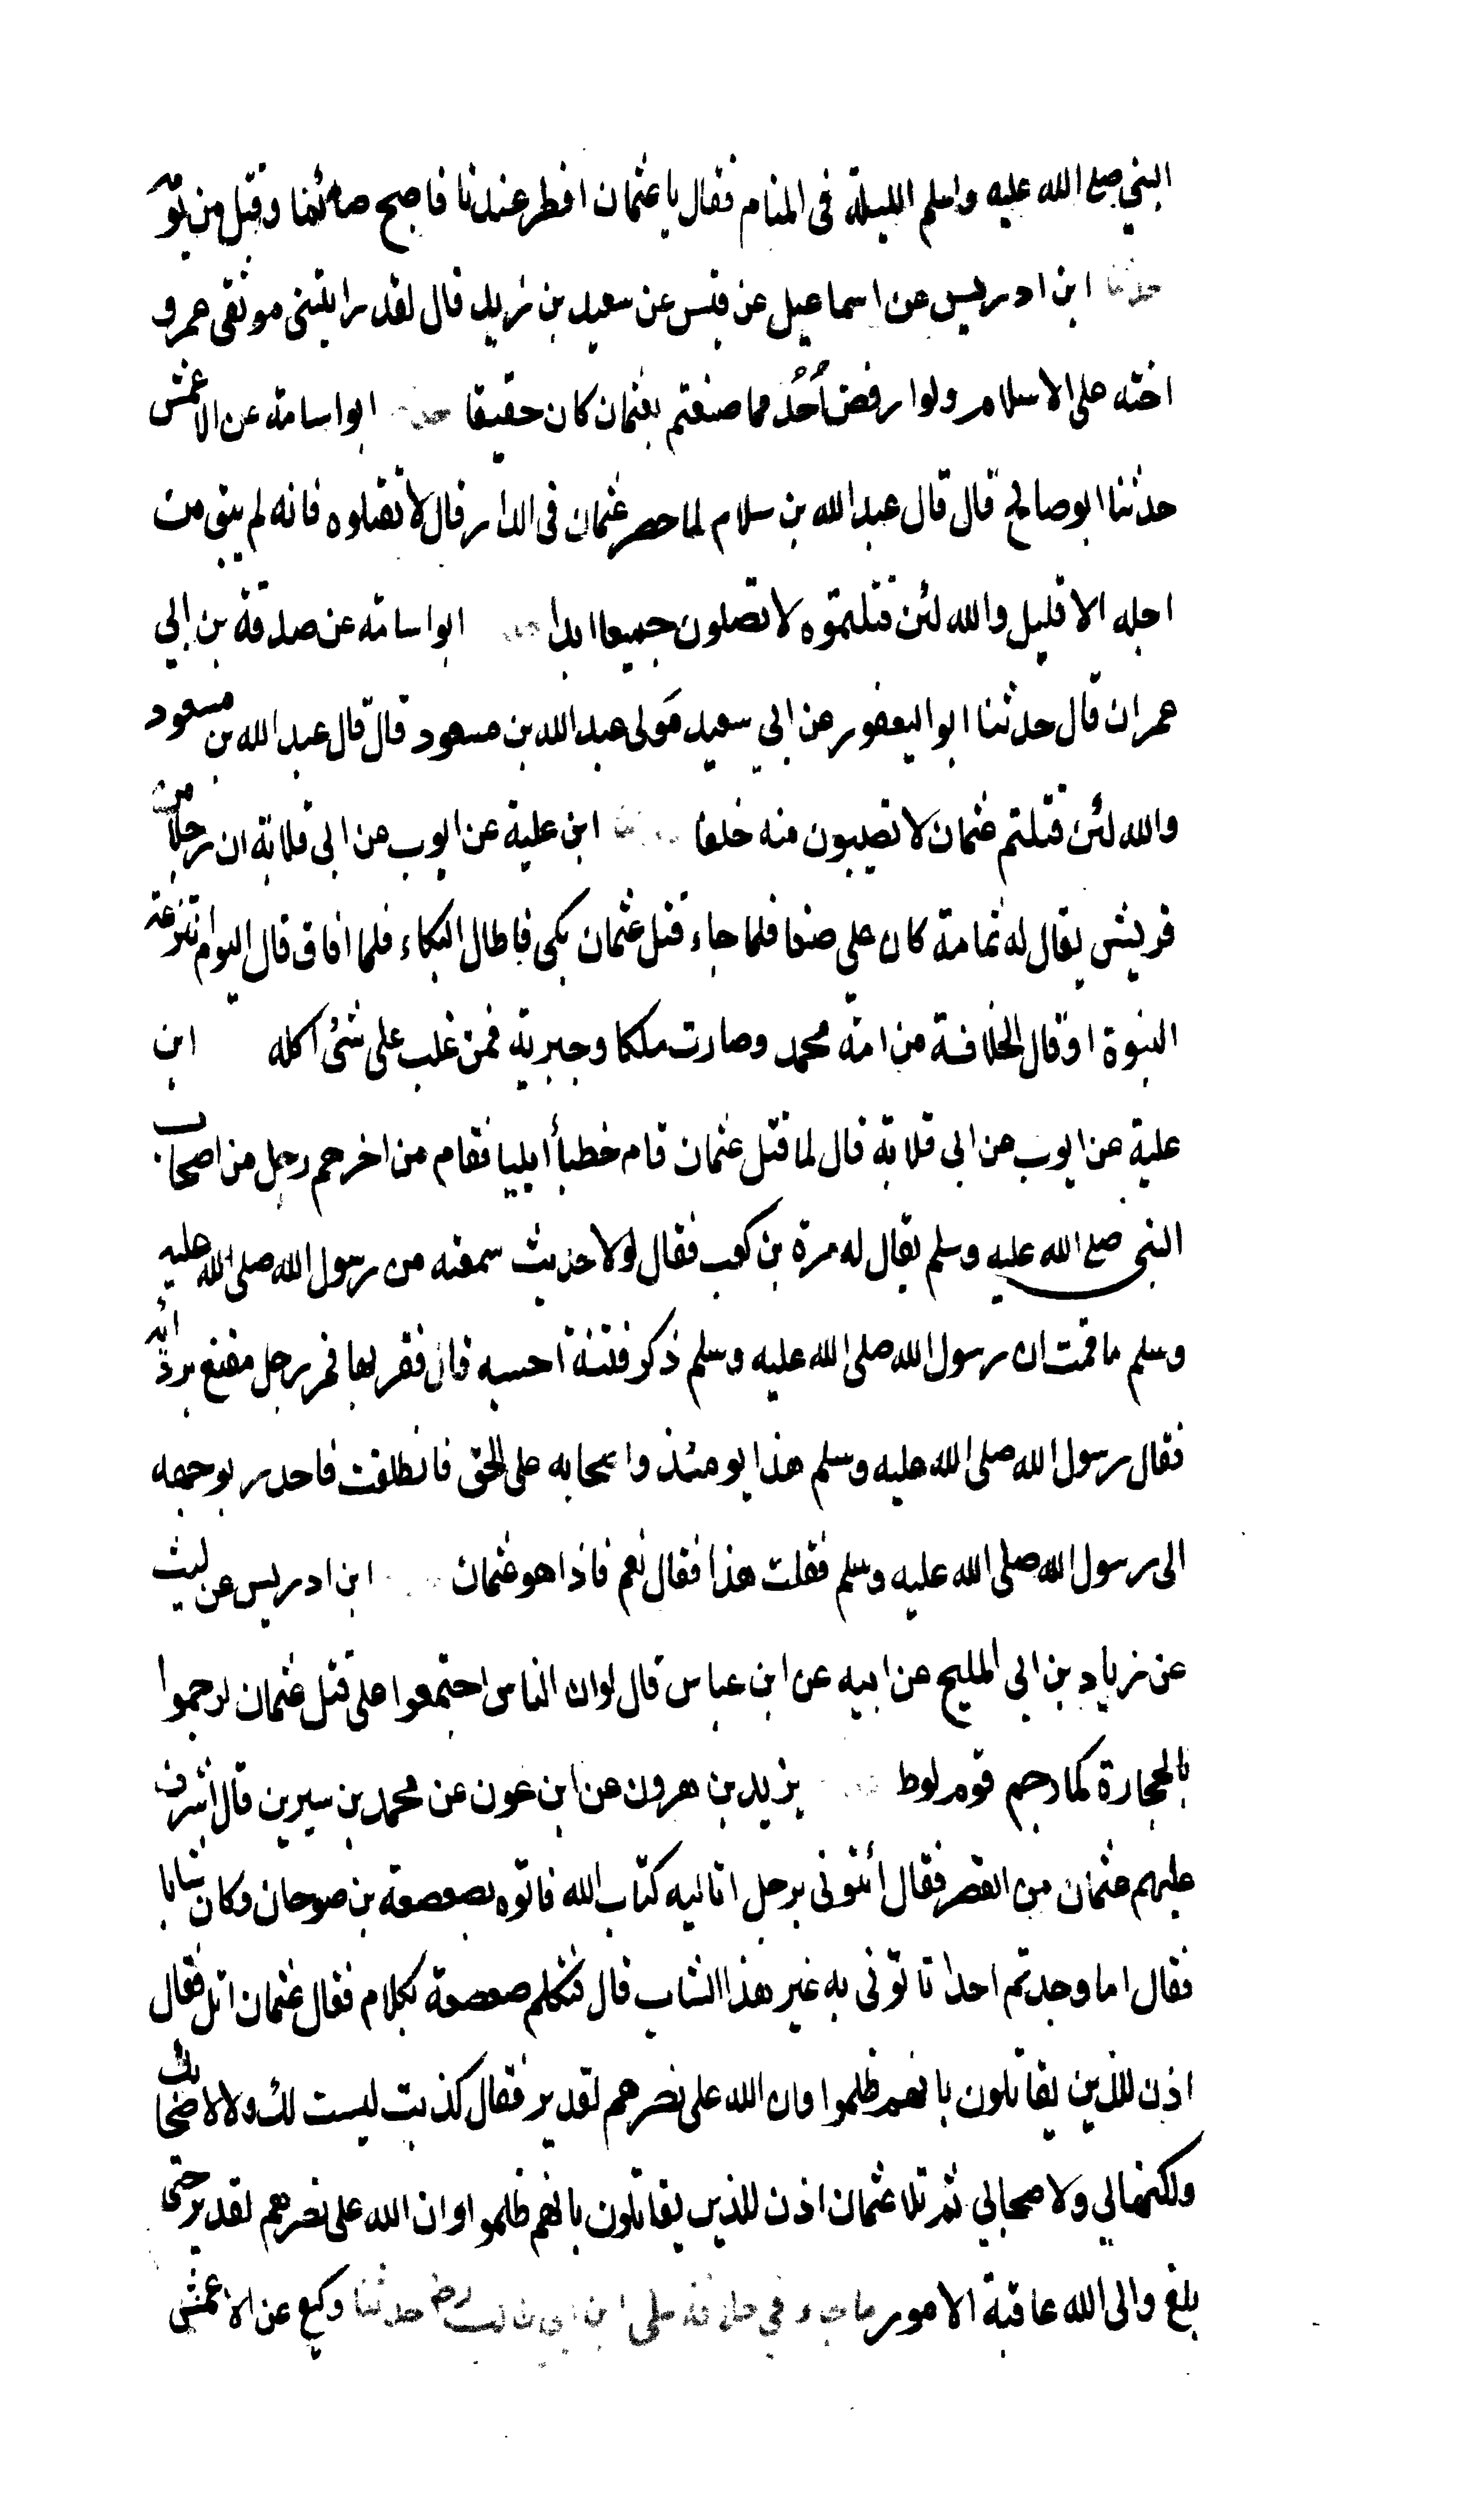 النبي صلى الله عليه وسلم الليلة في المنام فقال يا عثمان افطر عندنا فاصبح صائما وقتل من يومه
حدثنا ابن ادريس عن اسماعيل عن قيس عن سعيد بن زيد قال لقد رايتني موثقى عمر و
اخته على الاسلام ولو ارفض اُحُد مما صنعتم بعثمان كان حقيقا حدثنا ابو اسامة عن الاعمش
حدثنا ابو صالح قال قال عبد الله بن سلام لما حصر عثمان في الدار قال لا تقتلوه فانه لم يبق من
اجله الا قليل والله لئن قتلتموه لا تصلون جميعا ابدا ابو اسامة عن صدقة بن ابي
عمران قال حدثنا ابو اليعفور عن ابي سعيد مولى عبد الله بن مسعود قال قال عبد الله بن مسعود
والله لئن قتلتم عثمان لا تصيبون منه خلفا حدثنا ابن علية عن ايوب عن ابي قلابة ان رجلا من
قريش يقال له ثمامة كان على صنعا فلما جاء قتل عثمان بكى فاطال البكاء فلما افاق قال اليوم انتزعت
النبوة او قال الخلافة من امة محمد وصارت ملكا وجبرية فمن غلب على شئ اكله ابن
علية عن ايوب عن ابي قلابة قال لما قتل عثمان قام خطبأ ايليا فقام من اخرهم رجل من اصحاب
النبى صلى الله عليه وسلم يقال له مرة بن كعب فقال لولا حديث سمعته من رسول الله صلى الله عليه
وسلم ما قمت ان رسول الله صلى الله عليه وسلم ذكر فتنة احسبه قال فقربها فمر رجل مقنع بردائه
فقال رسول الله صلى الله عليه وسلم هذا يومئذ واصحابه على الحق فانطلقت فاخذر بوجهه
الى رسول الله صلى الله عليه وسلم فقلت هذا فقال نعم فاذا هو عثمان ابن ادريس عن ليث
عن زياد بن ابي المليح عن ابيه عن ابن عباس قال لو ان الناس اجتمعوا على قتل عثمان لرجموا
بالحجارة كما رجم قوم لوط يزيد بن هرون عن ابن عون عن محمد بن سيرين قال اشرف
عليهم عثمان من القصر فقال أئتوني برجل اتاليه كتاب الله فاتوه بصعصعة بن صوحان وكان شابا
فقال اما وجدتم احدا تاتوني به غير هذا الشاب قال فتكلم صعصعة بكلام فقال عثمان اتل فقال
اذن للذين يقاتلون بانهم ظلموا وان الله على نصرهم لقدير فقال كذبت ليست لك ولا لاصحابك
ولكنها لي ولاصحابي ثم تلا عثمان اذن للذين يقاتلون بانهم ظلموا وان الله على نصرهم لقدير حتى
بلغ والى الله عاقبة الامور ما جاء في خلافة على ابن ابي طالب حدثنا وكيع عن الاعمش